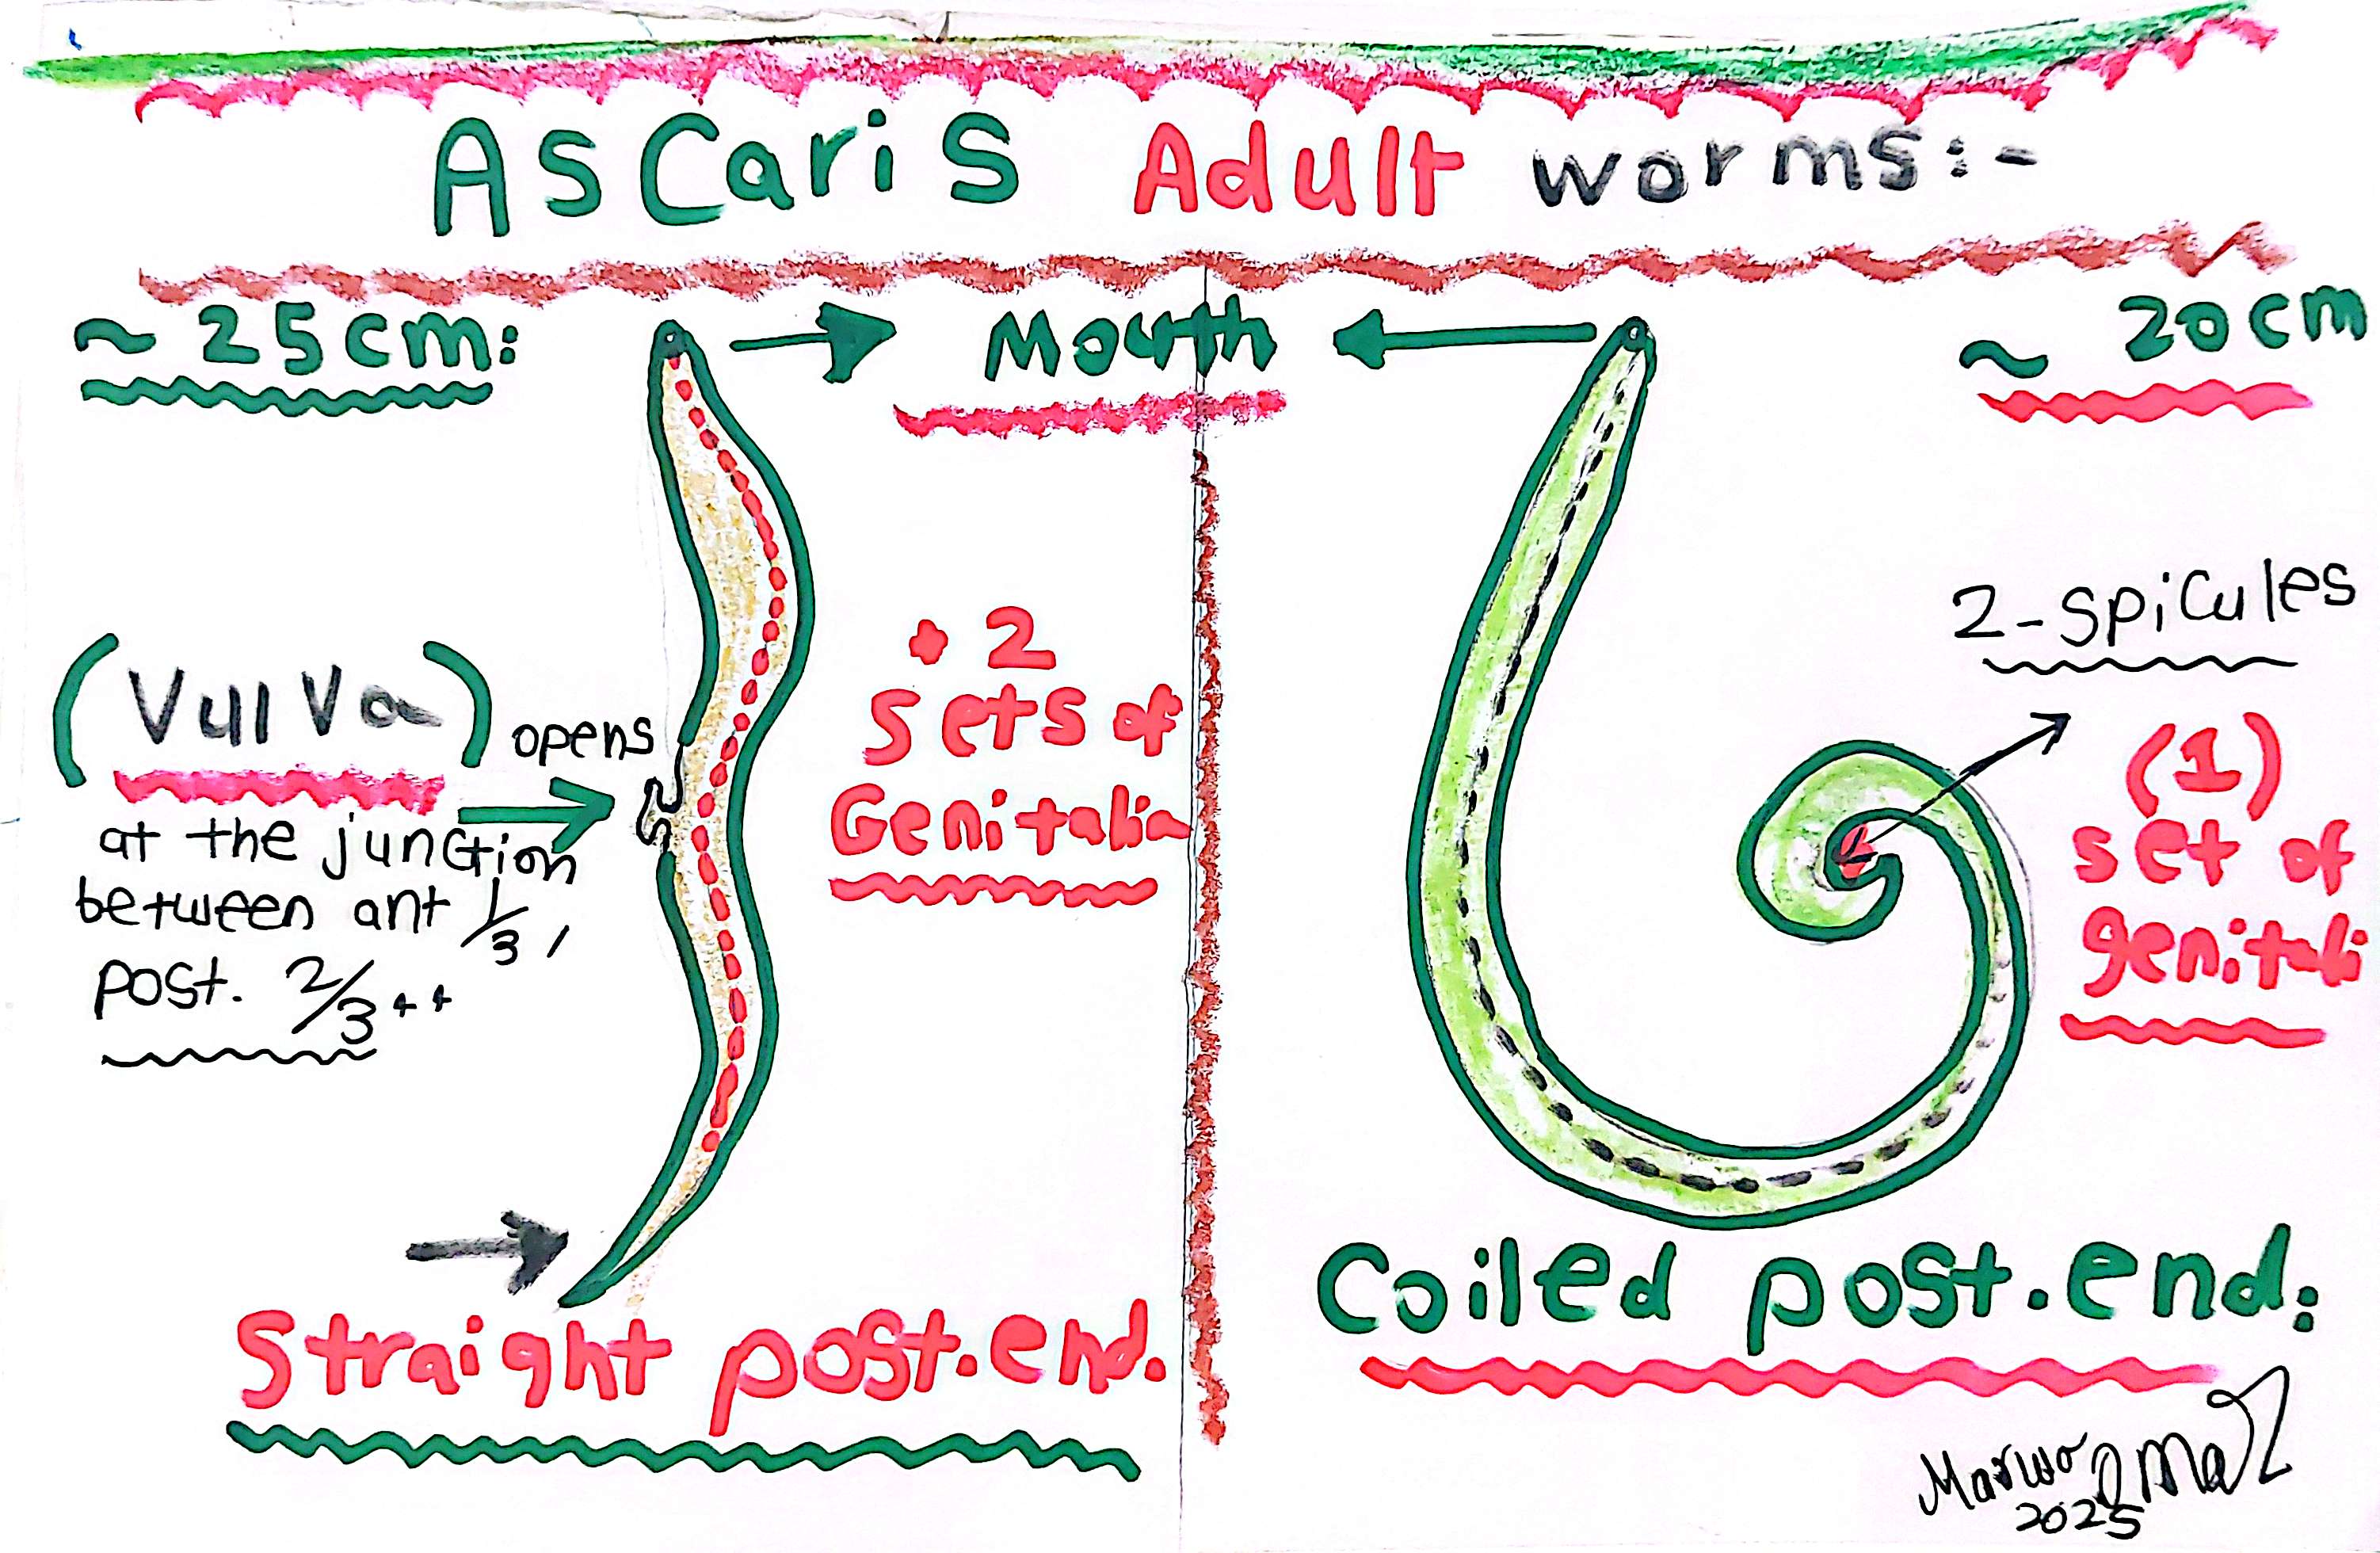 Ascaris Adult worms:-
~ 25cm:
Mouth
~ 20cm
(Vulva) opens
at the junction
between ant 1/3,
post. 2/3++
• 2
sets of
Genitalia
Straight post.end.
2-spicules
(1)
set of
genitali
Coiled post.end:
Marwa Omar
2025